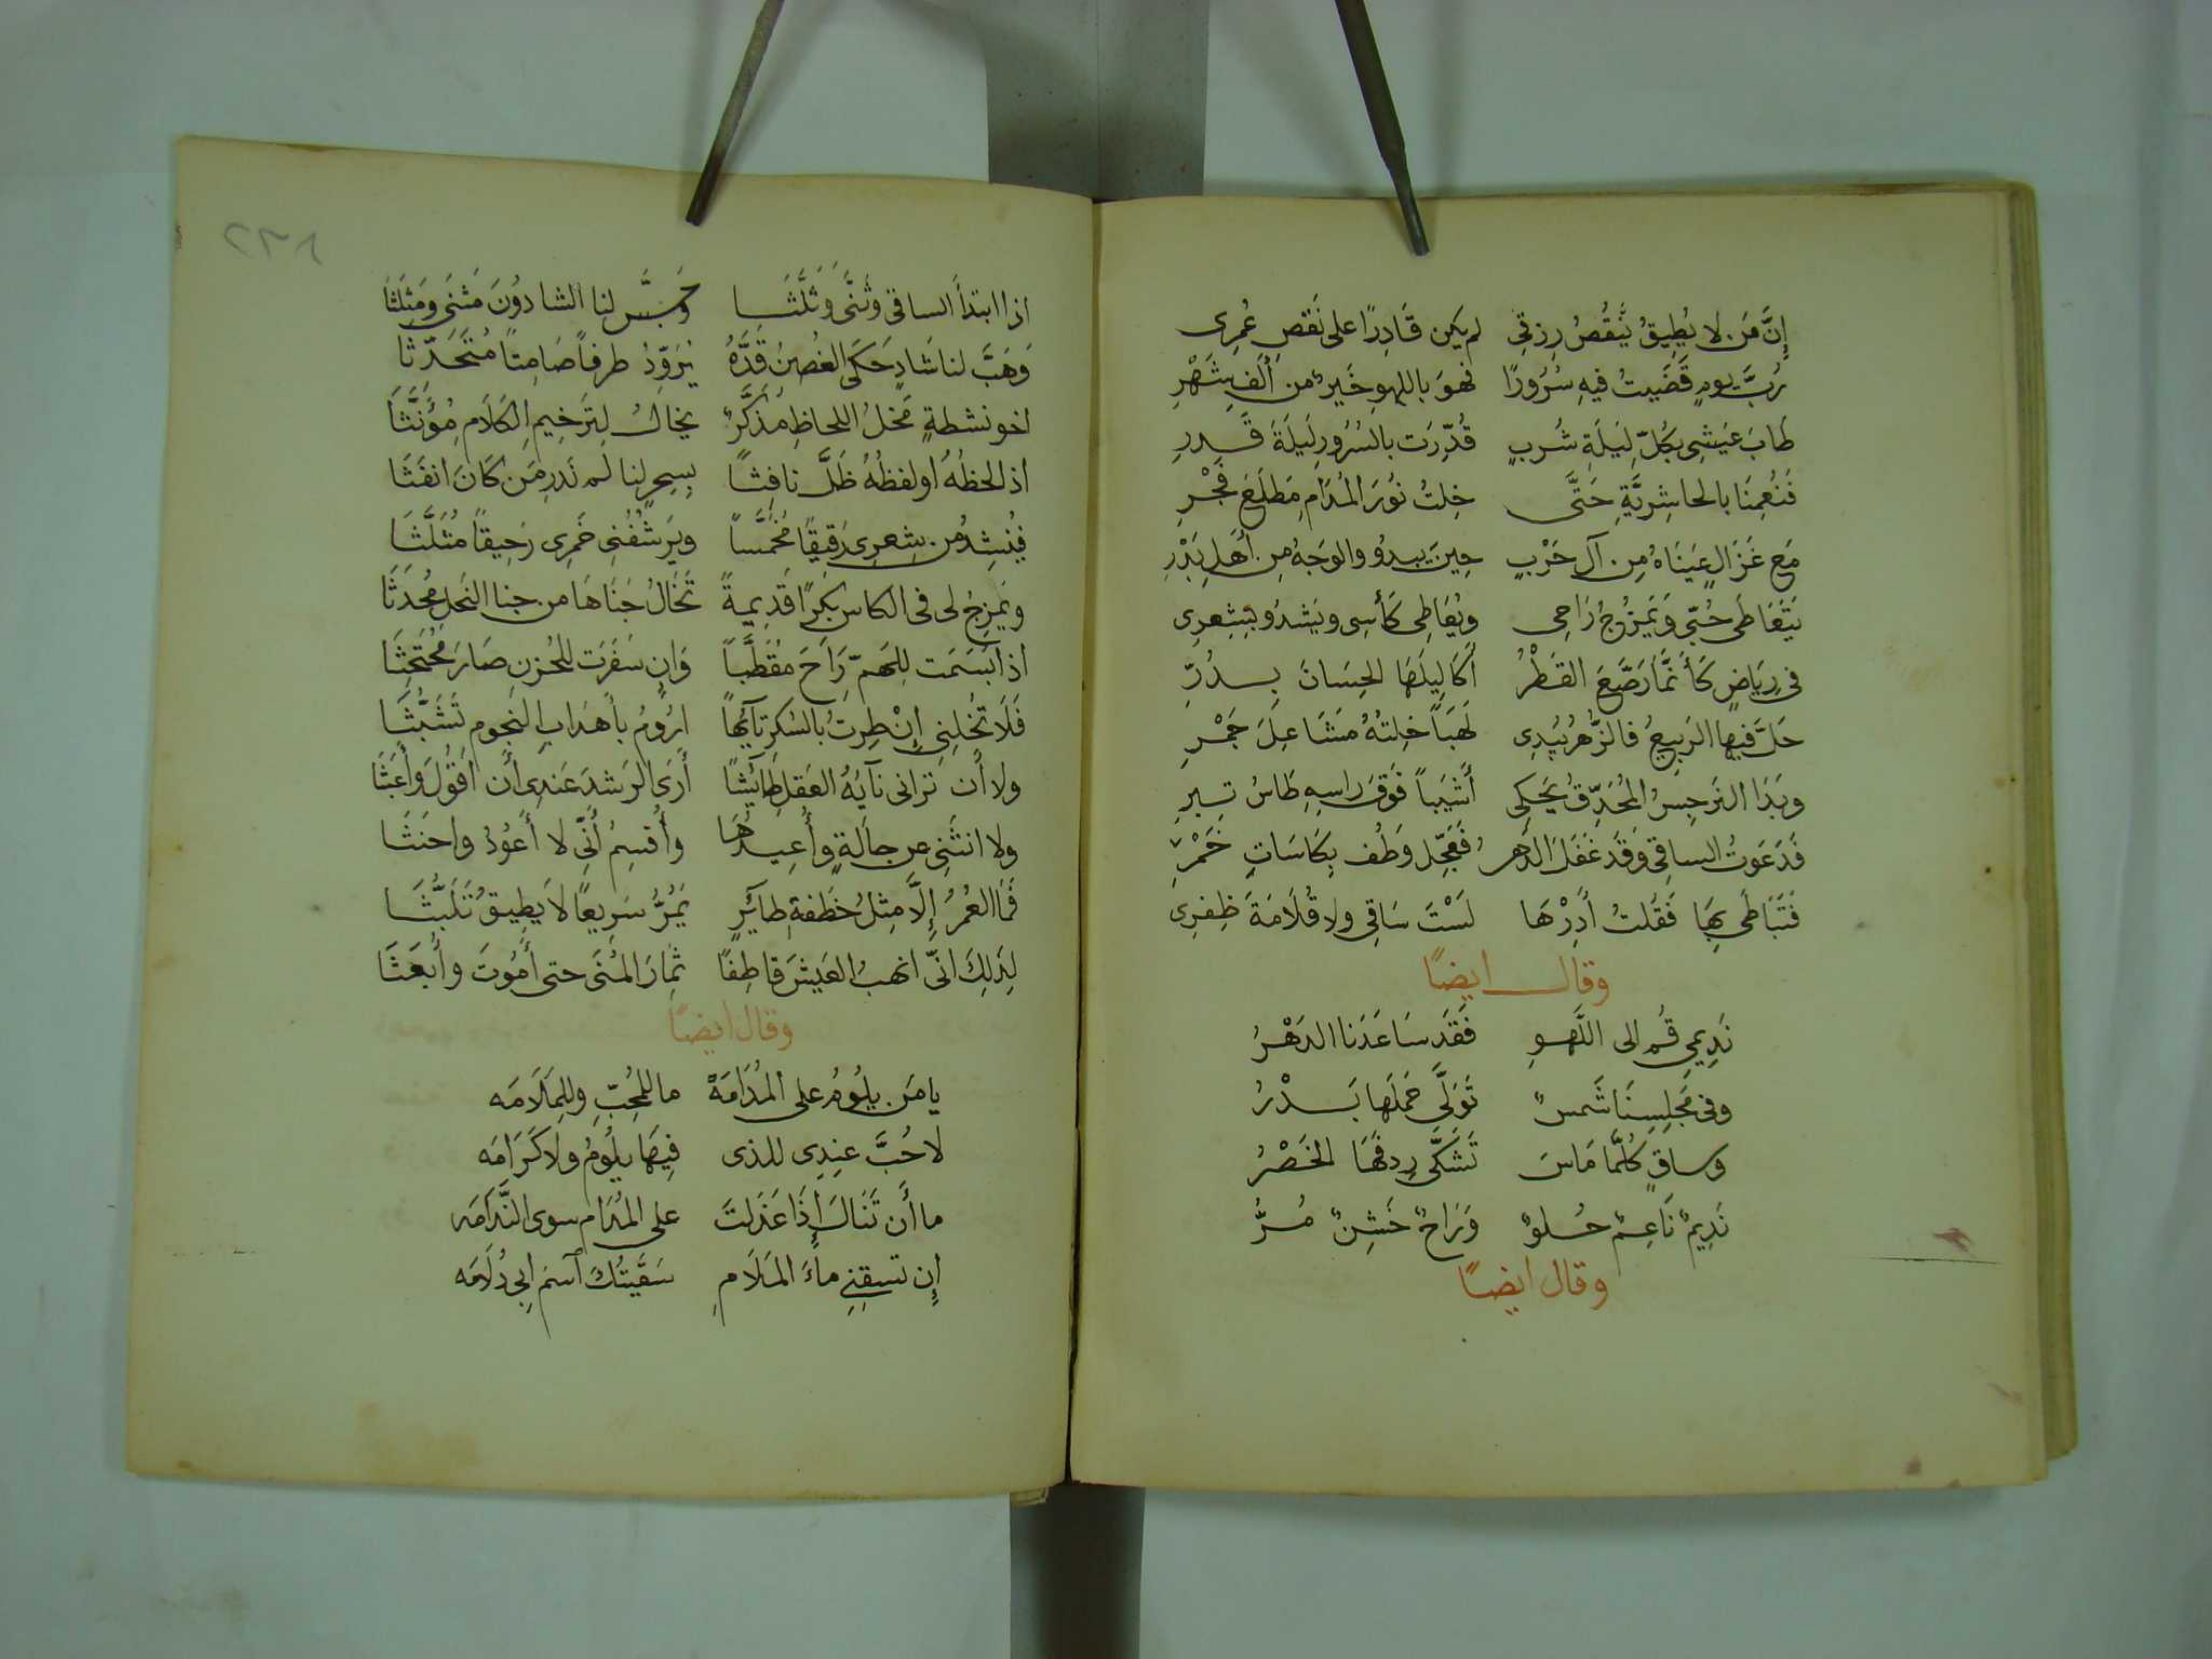 إِنَّ مَن لا يُطِيقُ يَنقُصُ رِزقي لم يكن قَادِرًا على نَقصِ عُمرِى
رُبَّ يومٍ قَضَيتُ فيهِ سُرُورًا فهوَ باللهوِ خَيرٌ من أَلفِ شَهْرِ
طَابَ عَيشِى بكُلِّ لَيلَةِ شُربٍ قُدِّرَت بالسُرُورِ لَيلَةَ قَدرِ
فَنُعِمنَا بالحاشِرِيَّةِ حَتَّى خِلتُ نُورَ المُدَامِ مَطلَعَ فَجْرِ
مَع غَزَالٍ عَينَاهُ مِن آلِ حَرْبٍ حِينَ يبدُو والوَجهُ مِن أَهلِ بَدْرِ
يَتَعَاطَى حُبّي وَيَمزُوجُ رَاحِى ويُعَاطِى كَأسِى ويَشدُو بِشِعرِى
فى رِيَاضٍ كَأَنَّمَا رَصَّعَ القَطْرُ أَكَالِيلَهَا الحِسَانَ بِدُرِّ
حَلَّ فيها الرَبِيعُ فالزَّهرُ يُبدِى لَهَبَاً خِلتُهُ مَشَاعِلَ جَمْرِ
وبَدَا النَرجِسُ المُحَدِّقُ يَحكِى أَشيَباً فَوقَ راسِهِ طَاسُ تِبرِ
فَدَعَوتُ الساقِى وَقَد غَفَلَ الدَهرُ فَعَجِّل وَطُف بِكَاسَاتِ خَمْرِ
فَتَبَاطَى بِهَا فَقُلتُ أَدِرْهَا لَسْتَ سَاقِى ولا قُلَامَةَ ظِفرِى
وقال ايضًا
نَدِيمِي قُم الى اللَّهوِ فَقَد سَاعَدَنا الدَهْرُ
وفى مَجلِسِنَا شَمسٌ تَوَلَّى حَملَها بَدْرُ
وساقٍ كُلَّمَا مَاسَ تَشَكَّى رِدفَهَا الخَصْرُ
نَدِيمٌ نَاعِمٌ حُلوٌ وَرَاحٌ خَشِنٌ مُرُّ
وقال ايضًا
٢٣١
اذا ابتدأ الساقى وثَنَّى وَثَلَّثَا وَجَسَّ لنا الشادوُنَ مَثنَى ومَثلَثَا
وَهَبَّ لنا شَادٍ حَكَى الغُصنُ قَدَّهُ يُرَوِّدُ طرفاً صَامِتاً مُتَحَدِّثَا
اخو نشطةٍ فحلُ اللحاظِ مُذَكَّرٌ يخالُ لِتَرخِيمِ الكَلَامِ مُؤَنَّثَا
اذ الحظُهُ او لفظُهُ ظَلَّ نافِثاً بِسِحرٍ لنا لم نَدرِ مَن كَانَ انفَثَا
فيُنشِدُ من شِعرِى رَقيقًا مُخَمَّساً ويَرشُفُنِى خَمرِى رَحِيقاً مُثَلَّثَا
ويَمزِجُ لى فى الكاس بِكرًا قَدِيمةً تَخَالُ جَنَاهَا من جنا النَحلِ مُحدَثَا
اذ ابتَسَمَت لِلهَمِّ رَاحَ مقَطَّباً وَان سَفَرَت للحُزنِ صَارَ مُحتَجثَا
فَلَا تُخلِنِى إِنْ طِرتُ بالسُكرِ تآيهًا ارُومُ بأَهدَابِ النجوم تَشَبُّثَا
ولا أن ترانى نآيَهُ العَقلِ طَائِشًا أَرَى الرَشدَ عَندِى أن اقُولَ وأَعبَثَا
ولا انثَنِى عن حالَةٍ وأُعِيدُهَا وأُقسِمُ أَنِّى لا أَعُودُ واحنَثَا
فَمَا العُمرُ إِلَّا مِثلُ خَطَفةِ طائِرٍ يَمُرُّ سَرِيعًا لَا يَطِيقُ تَلَبُّثَا
لِذَلِكَ انّى انهبُ العَيشَ قاطِفًا ثِمارَ المُنَى حتى أَمُوتَ وأُبعَثَا
وقال ايضًا
يا مَن يلُومُ على المُدَامَهْ ما للمُحِبِّ وللمَلَامَه
لا حُبَّ عِندِى للذى فِيهَا يلُومُ ولا كَرَامَه
ما أَن تَنَالَ إِذَا عَذَلتَ على المُدَام سوى النَّدَامَه
إِن تسقِنِى ماءَ المَلَامِ سَقَيتُكَ آسمَ ابى دُلَامَه